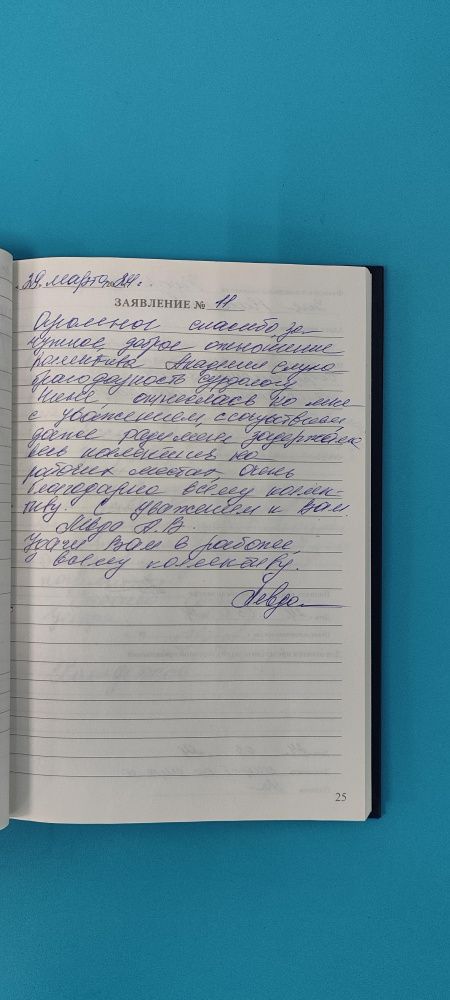 29 марта 24г.
ЗАЯВЛЕНИЕ № 11
Огромное спасибо за
чуткое, доброе отношение
коллектива Академия слуха
благодарность сурдологу
отнеслась ко мне
с уважением, сочувствием
даже ради меня задержался
весь коллектив на
рабочих местах, очень
благодарна всему коллек-
тиву. С уважением к Вам
А. В.
Удачи Вам в работе,
всему коллективу.
25